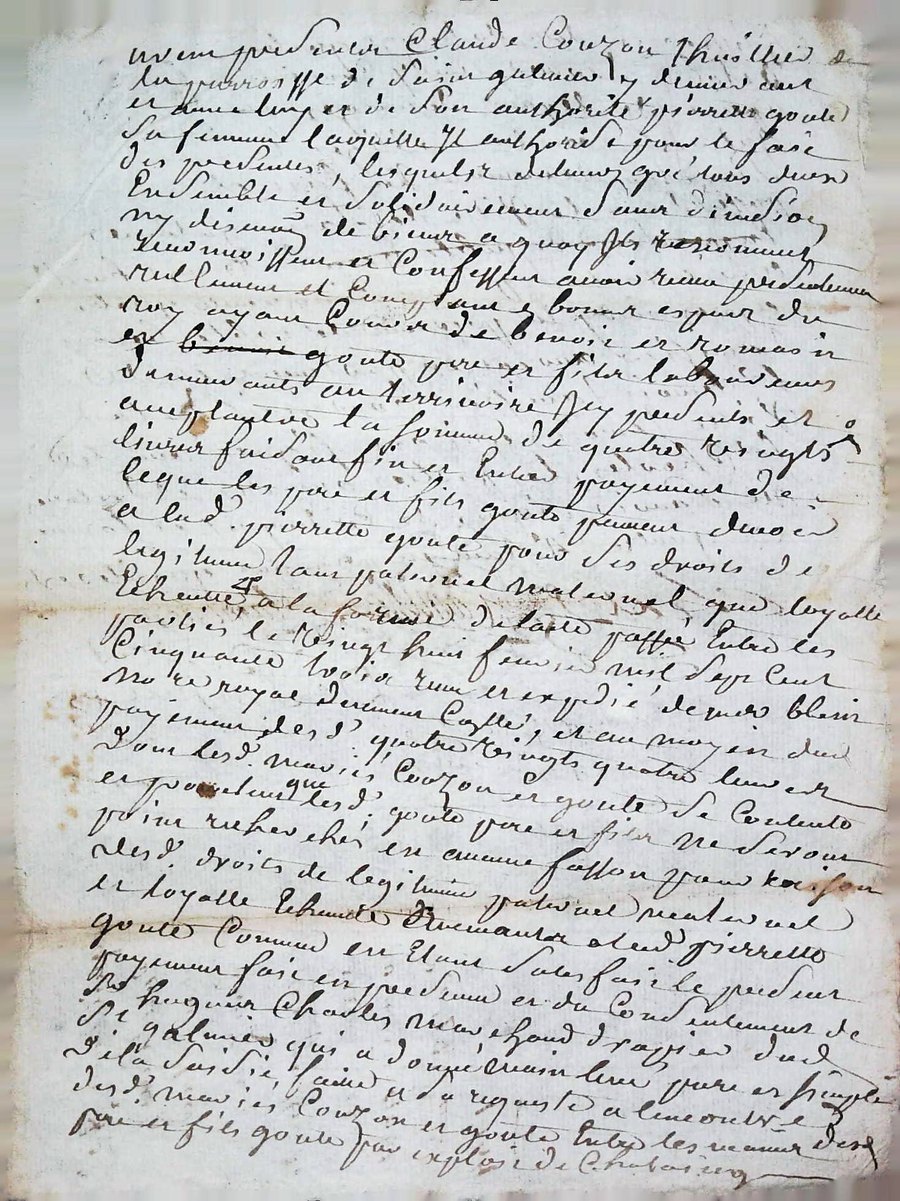 furent presents Claude Couzon thuillier de
la parroisse de saint galmier y demeurant
et avec luy et de son authorité pierrette goute
sa femme laquelle Il authorise pour le fait
des presentes, lesquels de leurs gré tous deux
Ensemble et solidairement sans division
ny discution de biens a quoy Ils renoncent
reconnoissent et Confessent avoir receu presentement
reellement et Comptant en bonnes especes du
roy ayant Cours de benoit et romain
et goute pere et fils laboureurs
demeurants au territoire Icy presents et
acceptants la somme de quatre vingts
livres faisant fin et Entier payement de
ce que les pere et fils goute peuvent devoir
a lad. pierrette goute pour ses droits de
legitime tant paternel maternel que loyalle
Echeutte, a la forme de lacte passé Entre les
parties le vingt huit fevrier mil sept Cent
Cinquante trois receu et expedié de mre blein
no.re royal dument Collé, et au moyen dud
payement desd. quatre vingts quatre livres
dont lesd. mariés Couzon et goute se Contente
et promettent que lesd. goute pere et fils ne seront
point recherchés en aucune fasson pour raison
desd. droits de legitime paternel maternel
et loyalle Echeutte a lad pierrette
goute Comme en Etant satisfaite le present
payement fait en presence et du Consentement de
Sr hugues Charles marchand drapier dud
St galmier qui a donné main levée pure et simple
de la saisie faite a sa requeste a lencontre
desd. mariés Couzon et goute Entre les mains desd
pere et fils goute par exploit de Chataing